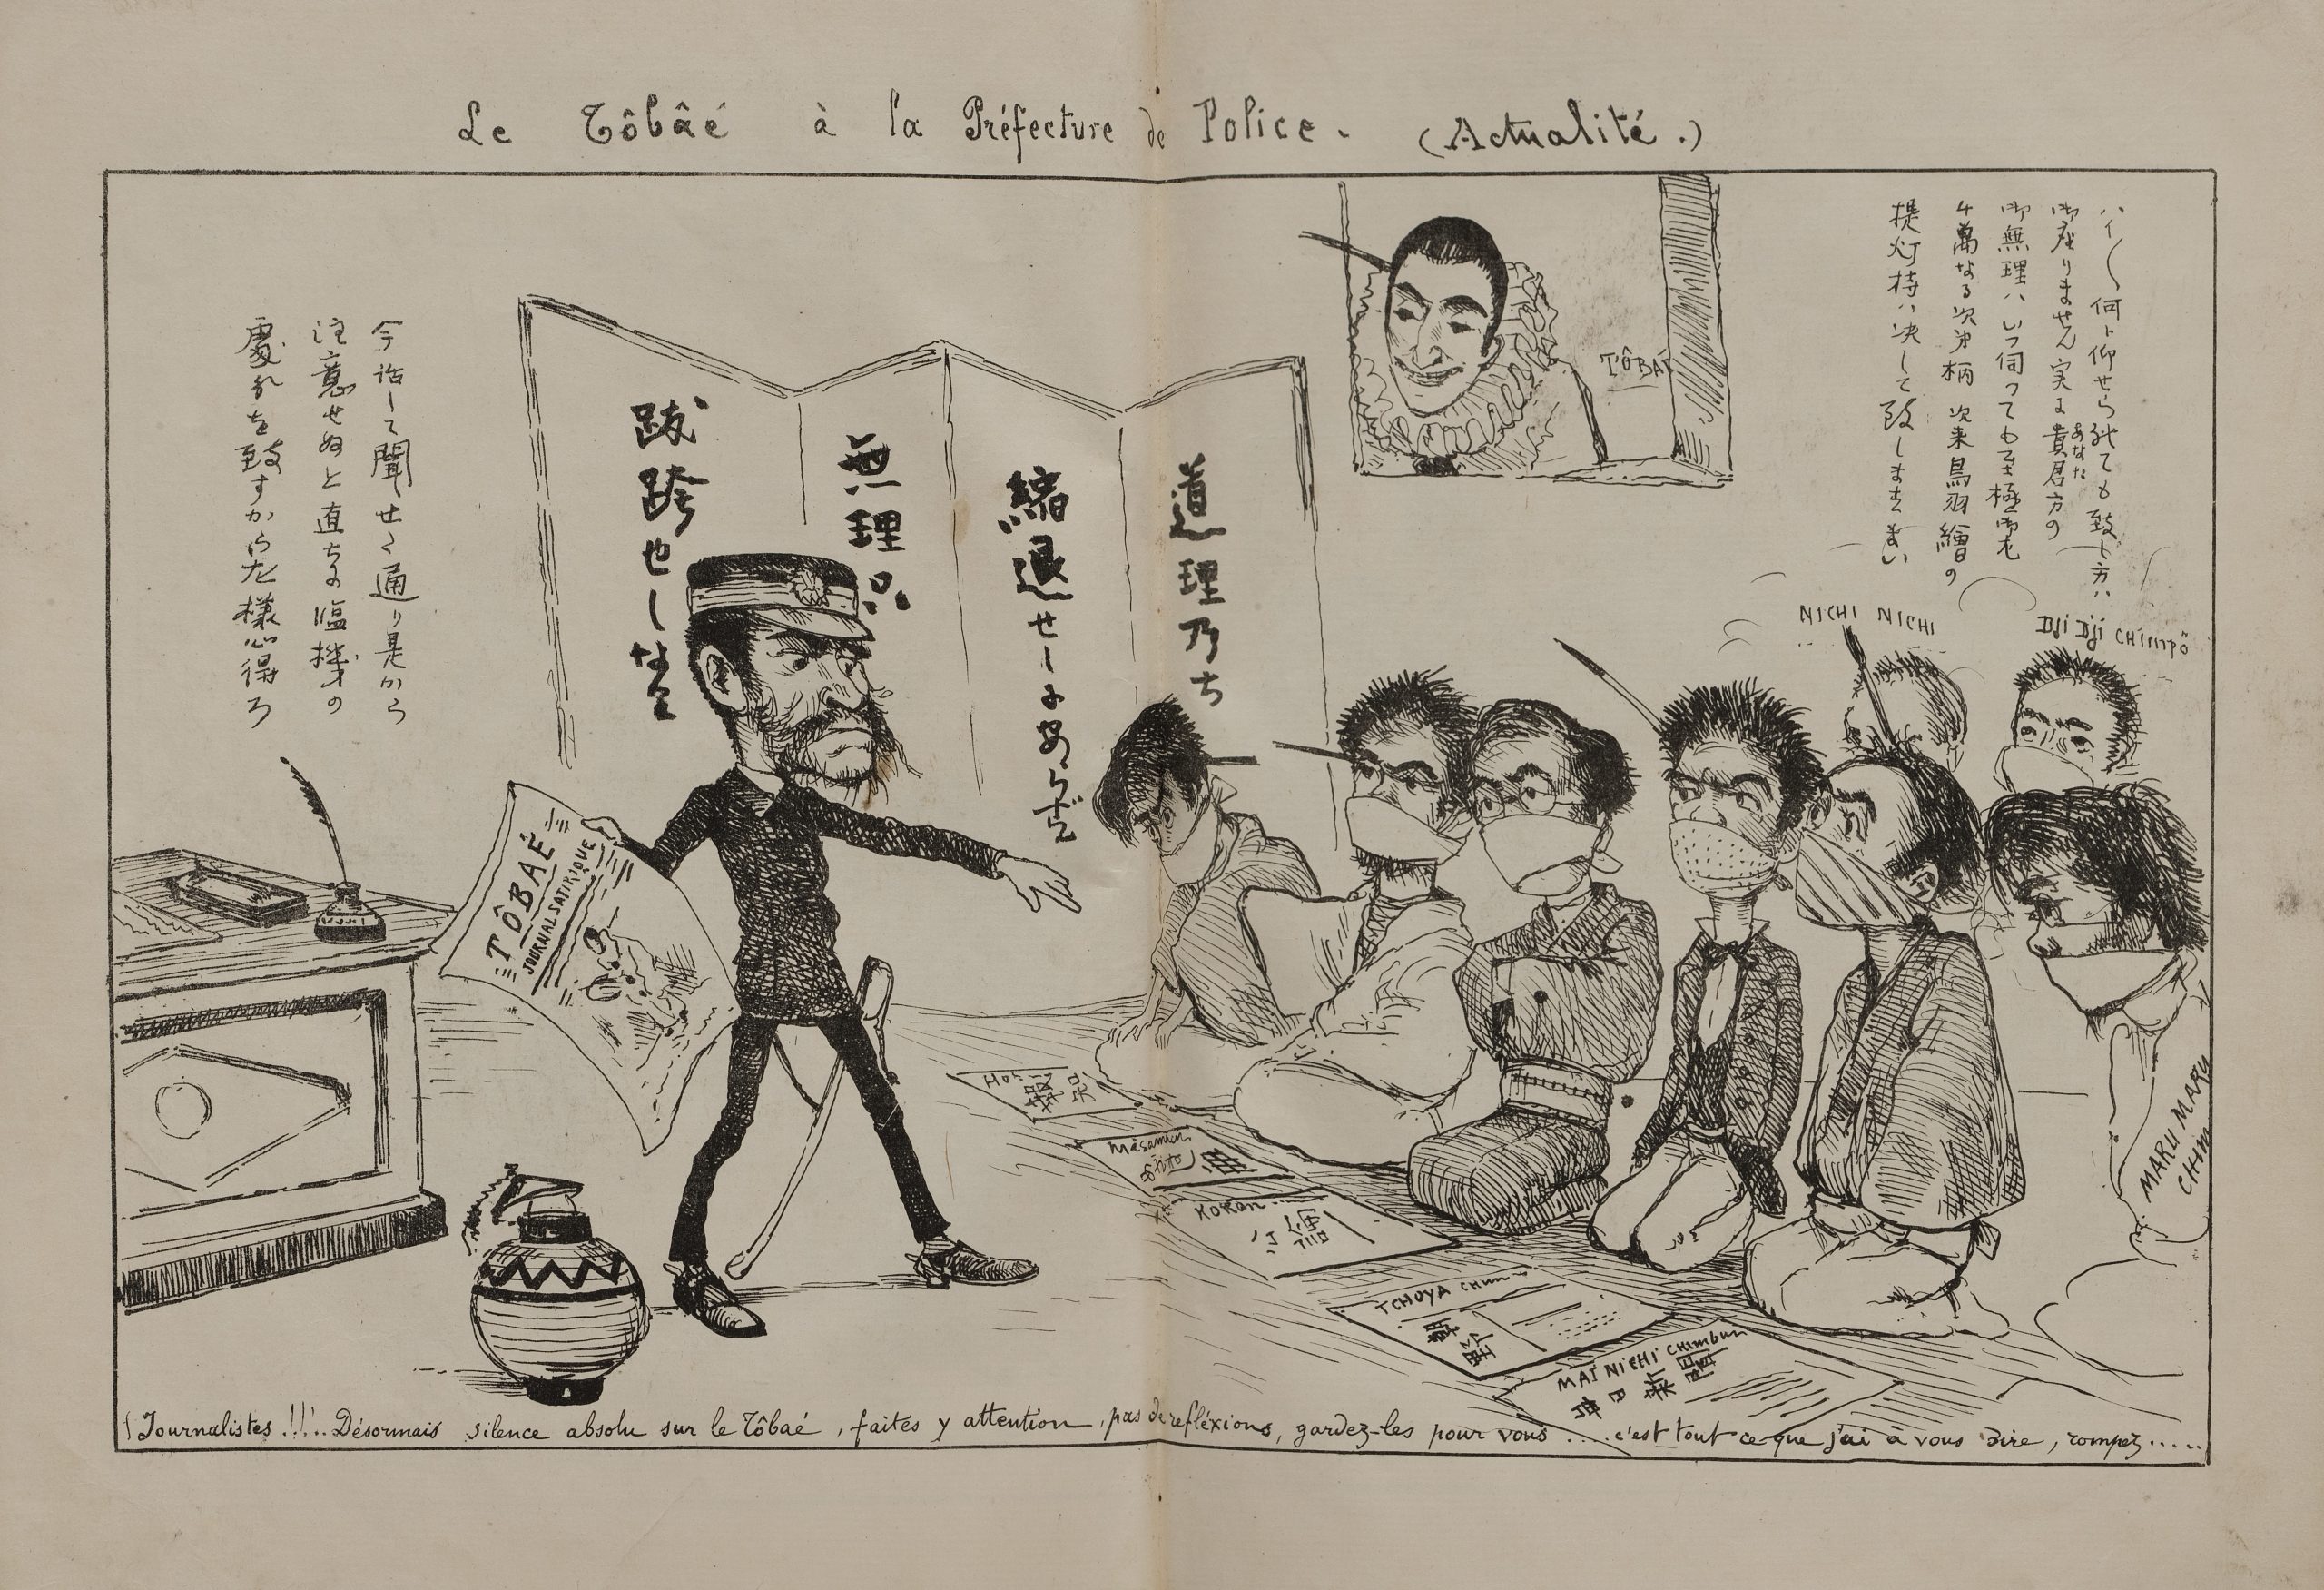 Le Tôbâé à la Préfecture de Police. (Actualité.)
ハイ〳〵何ト仰せられても致し方ハ
御座りません実に貴君方の
あなた
御無理ハいつ伺つても至極御尤
千萬なる次第柄 次来鳥羽繪の
提灯持ハ决して致しますまい
TÔBAÉ
道理乃ち
縮退せしにあらざ
無理
跋跨也しな
今話して聞せた通り是から
注意せぬと直ちに臨機の
處分を致すから左様心得ろ
NICHI NICHI
Dji Dji CHimpô
TÔBAÉ
JOURNAL SATIRIQUE
MARU MARU
CHIM
Ho
報知
KoRon
TCHOYA CHim
MAI NICHI CHimbun
毎日新聞
(Journalistes !!!.. Désormais silence absolu sur le Tôbaé, faites y attention, pas de refléxions, gardez-les pour vous .... c'est tout ce que j'ai à vous dire, rompez.....